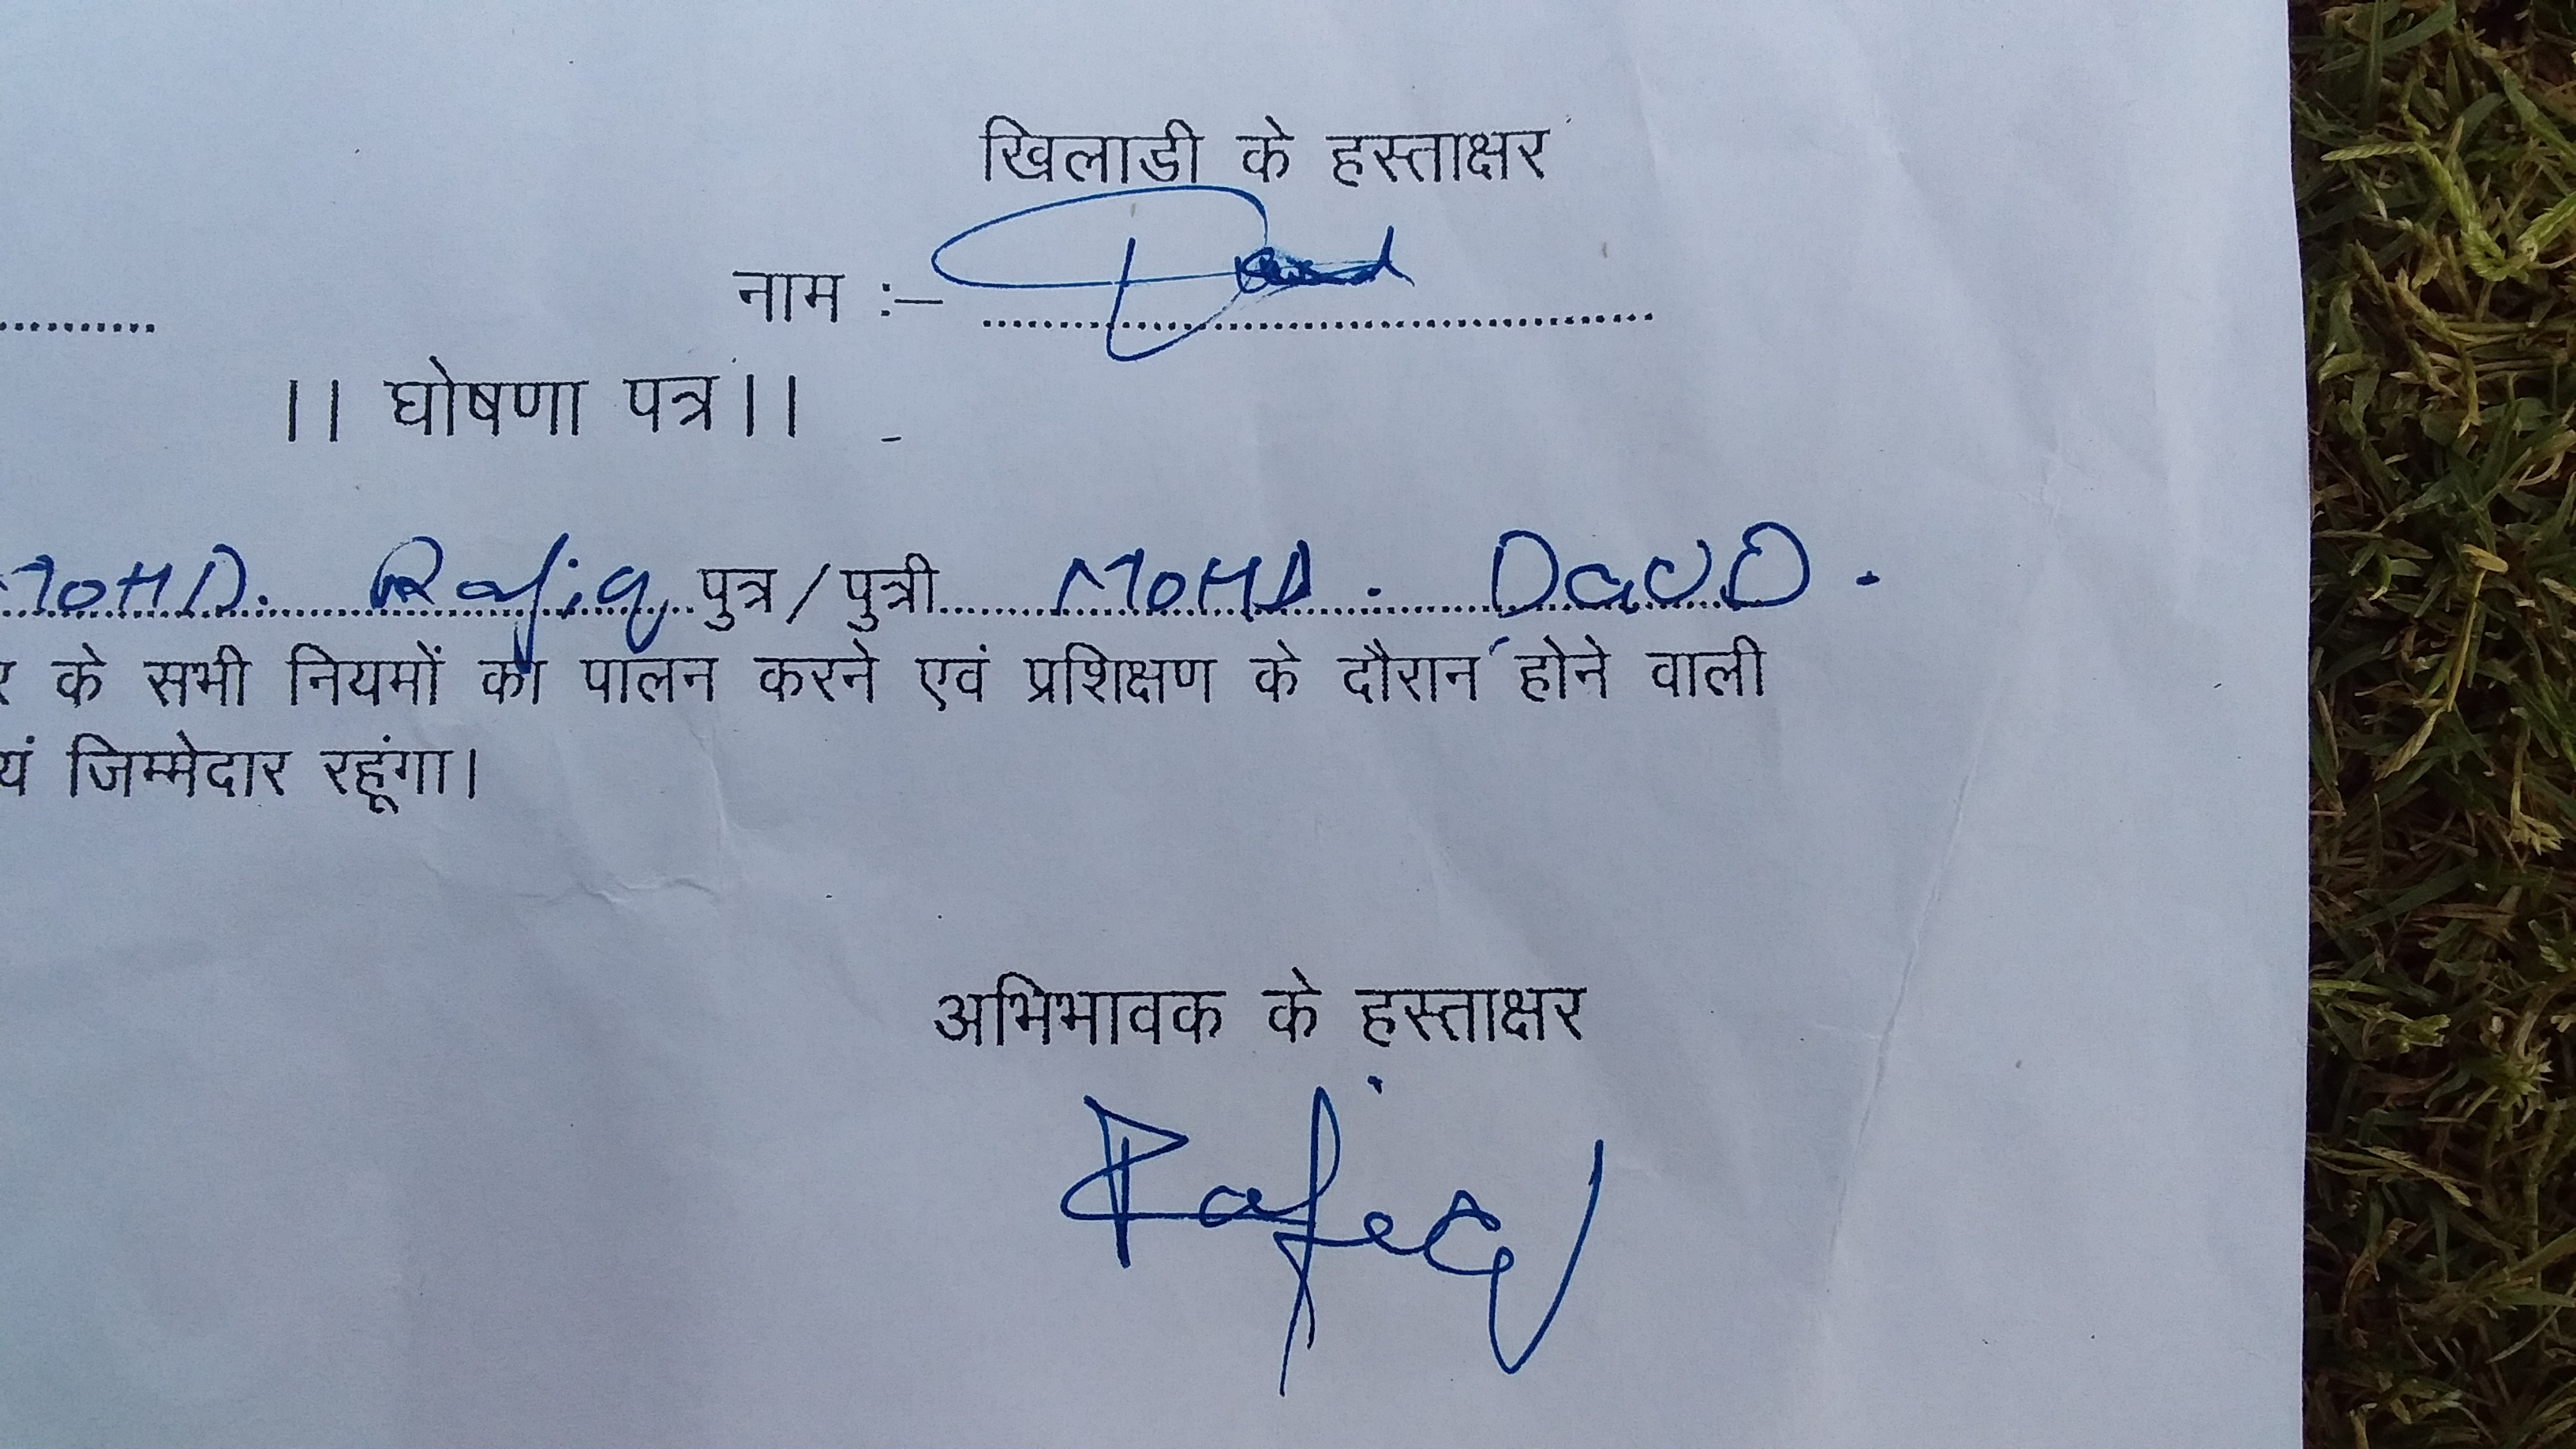 खिलाडी के हस्ताक्षर
नाम :–
।। घोषणा पत्र।।
MOHD. Rafiq पुत्र/पुत्री MOHD. DaUD.
के सभी नियमों का पालन करने एवं प्रशिक्षण के दौरान होने वाली
जिम्मेदार रहूंगा।
अभिभावक के हस्ताक्षर
Rafiq